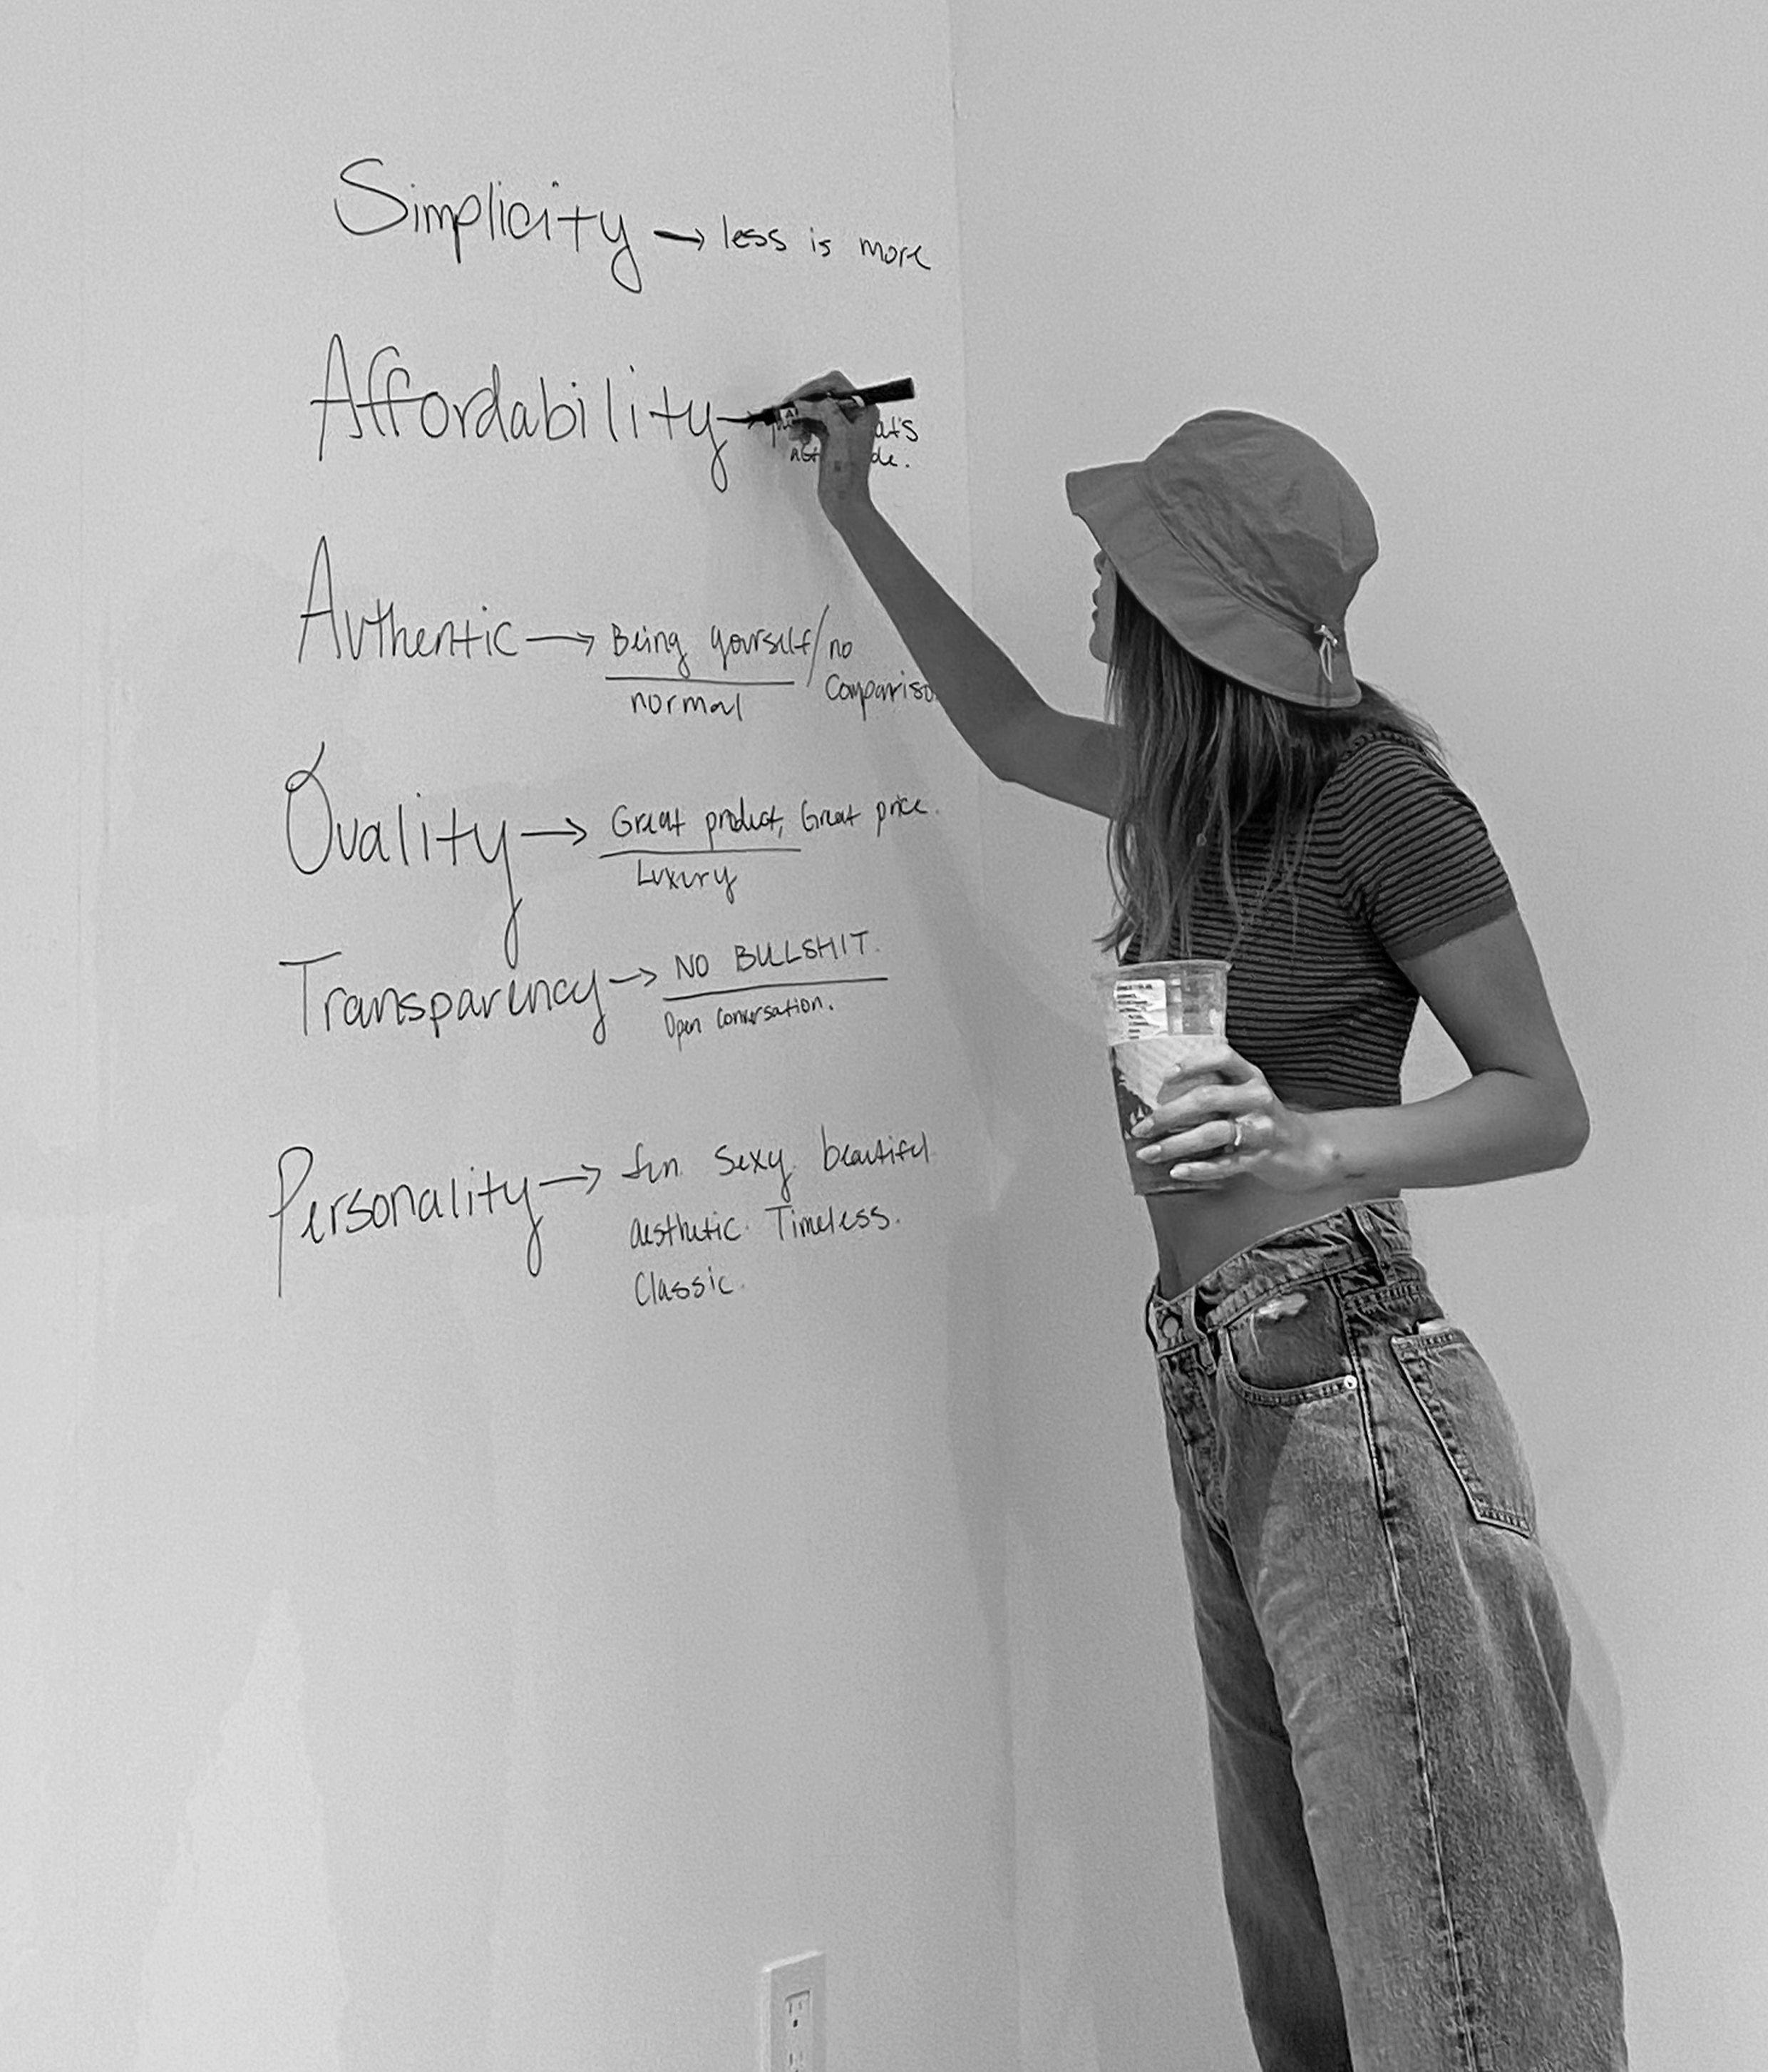 Simplicity → less is more
Affordability → at's
de.
Authentic → Being yourself / no
normal Compariso
Quality → Great product, Great price.
Luxury
Transparency → NO BULLSHIT.
Open conversation.
Personality → fun. Sexy. beautiful.
aesthetic. Timeless.
Classic.